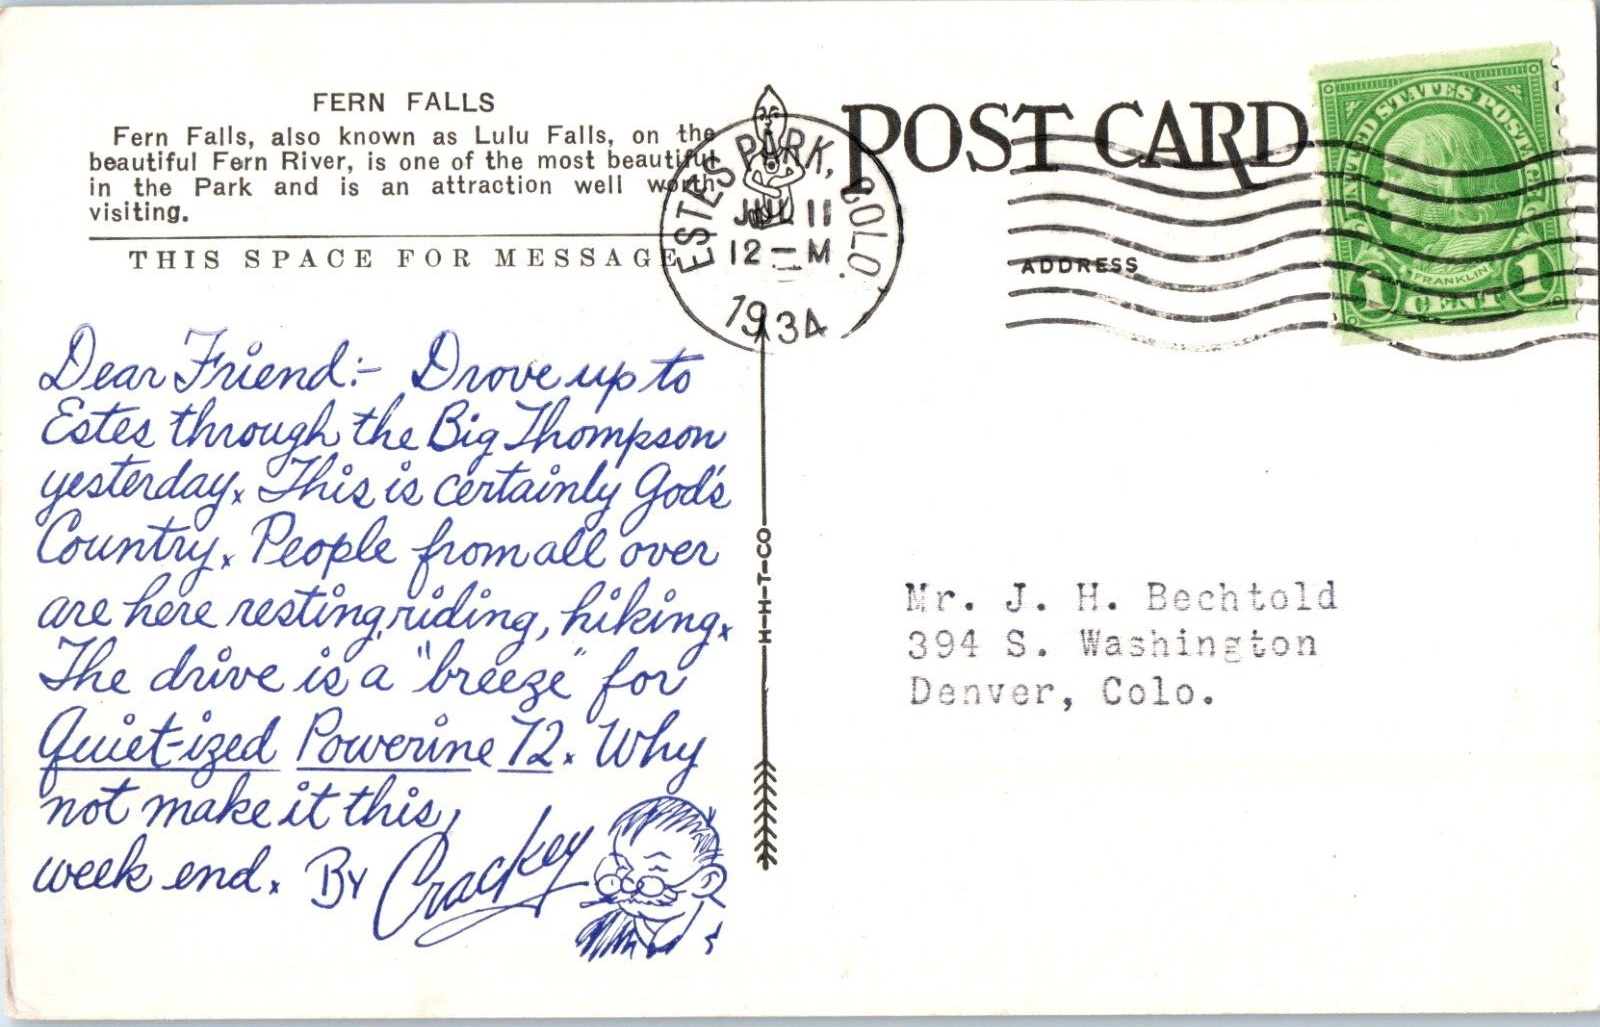 FERN FALLS
Fern Falls, also known as Lulu Falls, on the
beautiful Fern River, is one of the most beautiful
in the Park and is an attraction well worth
visiting.
THIS SPACE FOR MESSAGE
ESTES PARK, COLO.
JUL 11
12 — M
1934
POST CARD
ADDRESS
UNITED STATES POSTAGE
FRANKLIN
1 CENT 1
Dear Friend:- Drove up to
Estes through the Big Thompson
yesterday. This is certainly God's
Country. People from all over
are here resting, riding, hiking.
The drive is a "breeze" for
Quiet-ized Powerine 72. Why
not make it this
week end. By Crackey
H-H-T-CO
Mr. J. H. Bechtold
394 S. Washington
Denver, Colo.